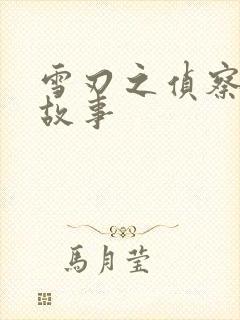 雪刃之偵察
故事
馬月瑩